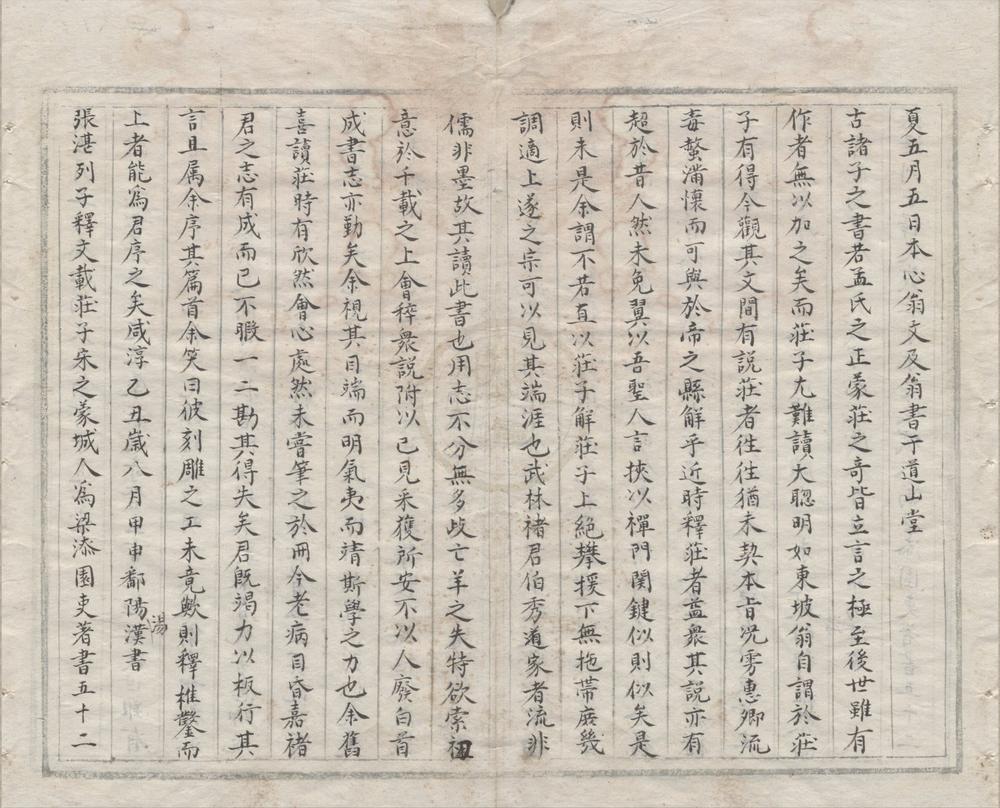 夏五月五日本心翁文及翁書于道山堂
古諸子之書若孟氏之正蒙莊之奇皆立言之極至後世雖有
作者無以加之矣而莊子尤難讀大聰明如東坡翁自謂於莊
子有得今觀其文間有説莊者徃徃猶未契本㫖况雱惠卿流
毒螫滿懷而可與於帝之縣解乎近時釋莊者益衆其説亦有
超於昔人然未免翼以吾聖人言挾以禪門関鍵似則似矣是
則未是余謂不若直以莊子解莊子上絶攀援下無拖帶庶幾
調適上遂之宗可以見其端涯也武林禇君伯秀道家者流非
儒非墨故其讀此書也用志不分無多歧亡羊之失特欲索祖
意於千載之上㑹稡衆説附以己見采獲所安不以人廢白首
成書志亦勤矣余視其目端而明氣夷而靖斯學之力也余舊
喜讀莊時有欣然㑹心處然未嘗筆之於冊今老病目昏嘉禇
君之志有成而已不暇一二勘其得失矣君既竭力以板行其
言且属余序其篇首余笑曰彼刻雕之工未竟歟則釋椎鑿而
上者能爲君序之矣咸淳乙丑歳八月甲申鄱陽湯漢書
張湛列子釋文載莊子宋之蒙城人爲梁漆園吏著書五十二